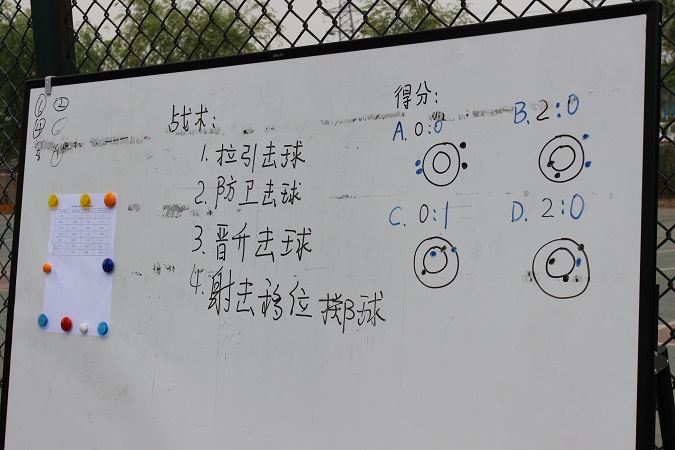 战术:
1. 拉引击球
2. 防卫击球
3. 晋升击球
4. 射击移位
得分:
A. 0:0
B. 2:0
C. 0:1
D. 2:0